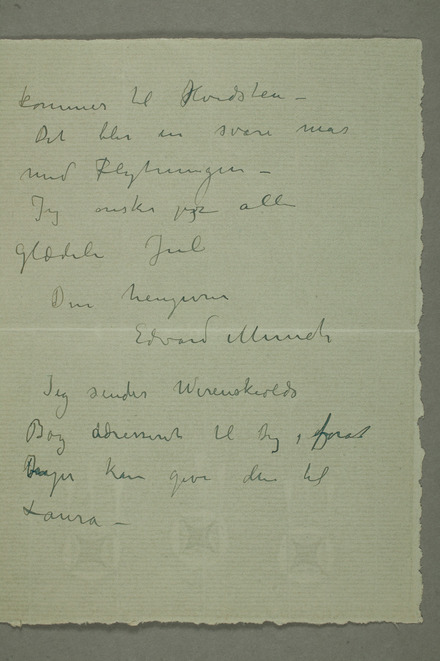 kommer til Hvidsten –
Det blir en svare mas
med Flytningen –
Jeg ønsker jer alle
Glædeli Jul
Din hengivne
Edvard Munch
Jeg sender Werenskiolds
Bog adresseret til dig, forat
kan give den til
Laura –